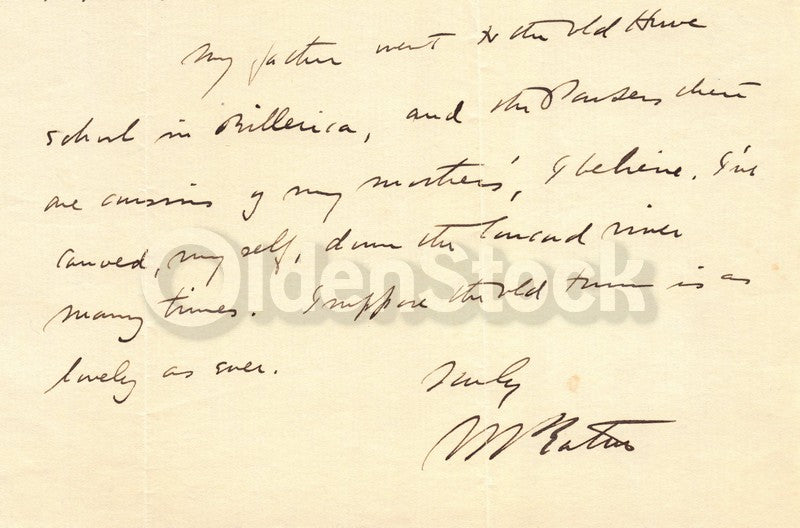 My father went to the old Howe
school in Billerica, and the there
are cousins of my mother's, I believe. I've
canoed, my self, down the Concord river
many times. I suppose the old town is as
lovely as ever.
Truly
OldenStock